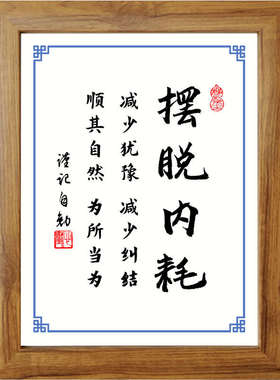 摆脱内耗
减少犹豫 减少纠结
顺其自然 为所当为
谨记自勉